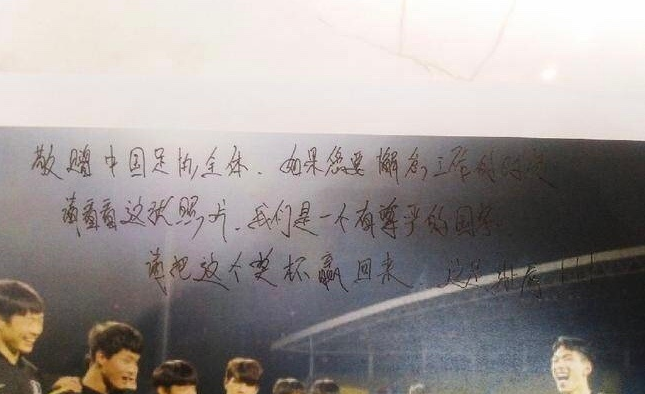 敬赠中国足协全体.如果您要懈怠工作的时候
请看看这张照片.我们是一个有尊严的国家.
请把这个奖杯赢回来 这是耻辱!!!